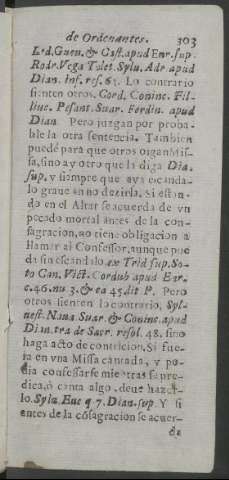 de Ordenantes. 303
Led. Guen. & Cast. apud Enr. sup.
Rodr. Vega Tolet. Sylu. Adr. apud
Dian. inf. res. 61. Lo contrario
sienten otros. Cord. Coninc. Fil-
liuc. Pesant. Suar. Ferdin. apud
Dian. Pero juzgan por proba-
ble la otra sentencia. Tambien
puedē para que otros oigan Mis-
sa, si no ay otro que la diga Dia.
sup. y siempre que aya escanda-
lo graue en no dezirla. Si estan-
do en el Altar se acuerda de vn
pecado mortal antes de la con-
sagracion, no tiene obligacion a
llamar al Confessor, aunque pue
da sin escandalo ex Trid sup. So-
to Can. Vict. Cordub apud Enr.
c. 46. nu 3. & ea 45. dit P. Pero
otros sienten lo contrario, Syl-
uest. Naua Suar. & Coninc. apud
Dian. tra de Sacr. resol. 48. sino
haga acto de contricion. Si fue-
ra en vna Missa cantada, y po-
dia confessarse mientras se pre-
dica, ò canta algo, deue hazer-
lo. Sylu. Euc q 7. Dian. sup. Y si
antes de la cōsagracion se acuer-
da